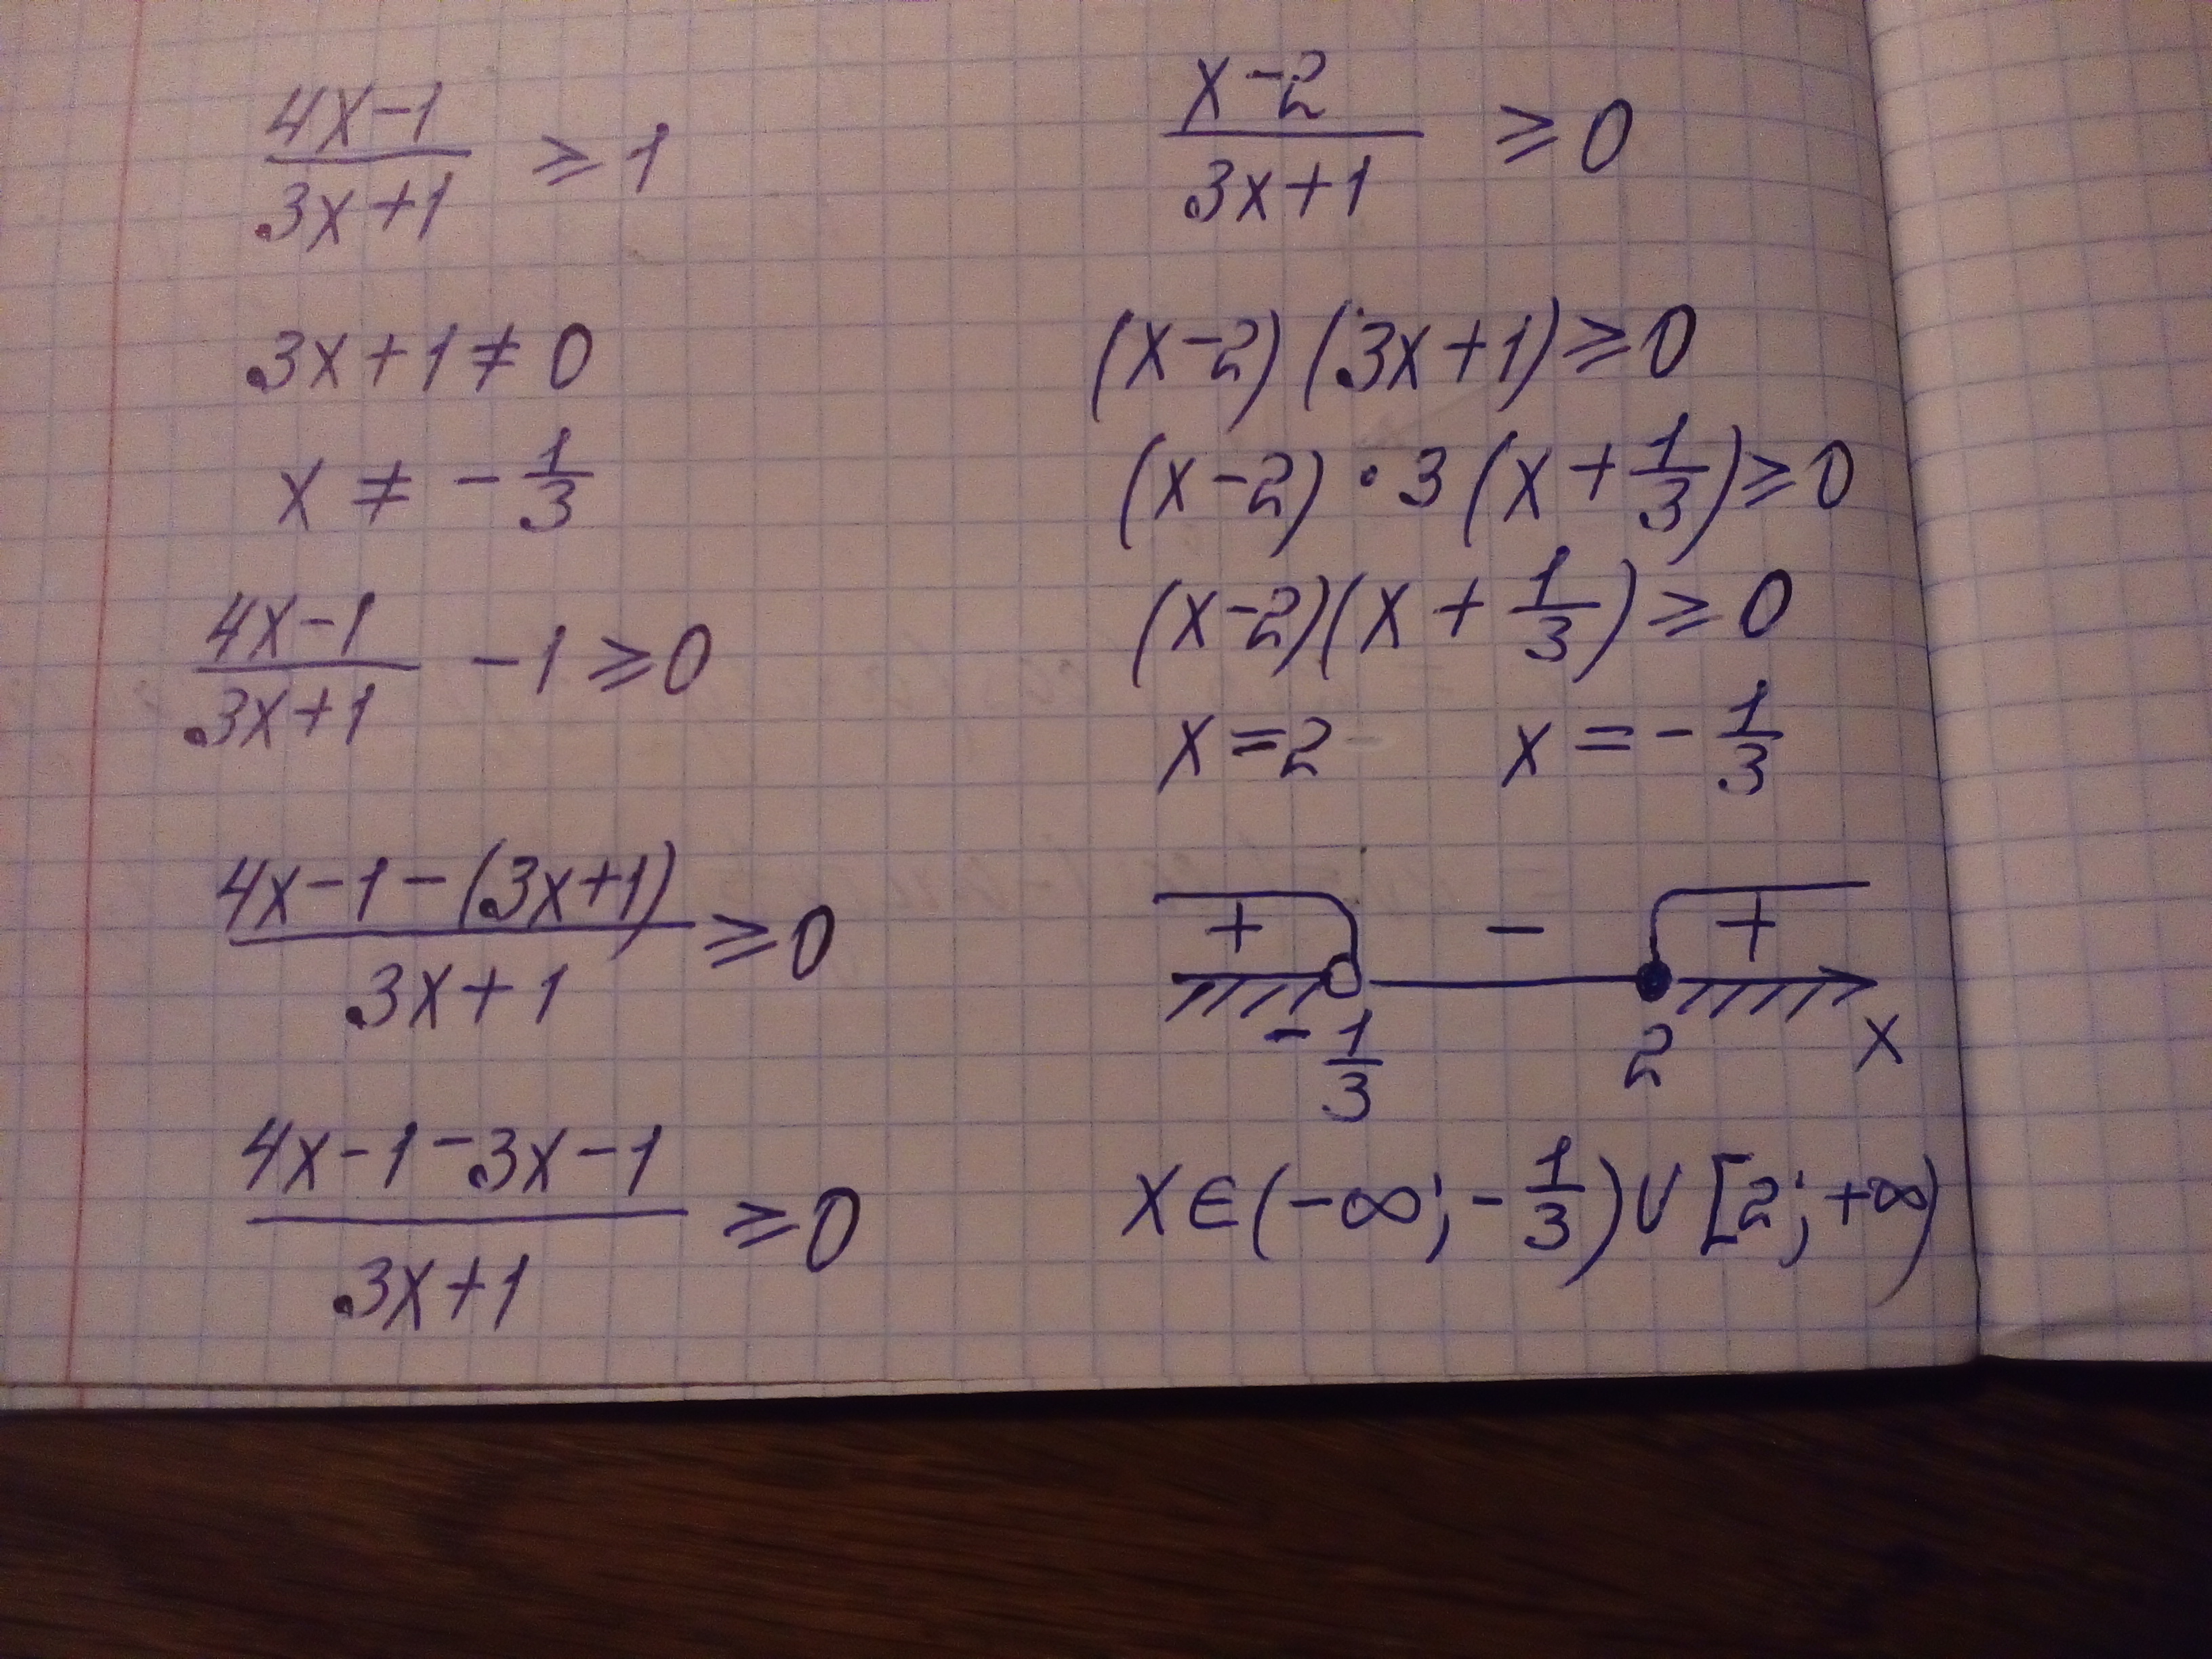 (4x-1)/(3x+1) ≥ 1
3x+1 ≠ 0
x ≠ -1/3
(4x-1)/(3x+1) -1 ≥ 0
(4x-1-(3x+1))/(3x+1) ≥ 0
(4x-1-3x-1)/(3x+1) ≥ 0
(x-2)/(3x+1) ≥ 0
(x-2)(3x+1) ≥ 0
(x-2)·3(x+1/3) ≥ 0
(x-2)(x+1/3) ≥ 0
x=2 x=-1/3
+ - +
-1/3 2 x
x∈(-∞;-1/3)∪[2;+∞)